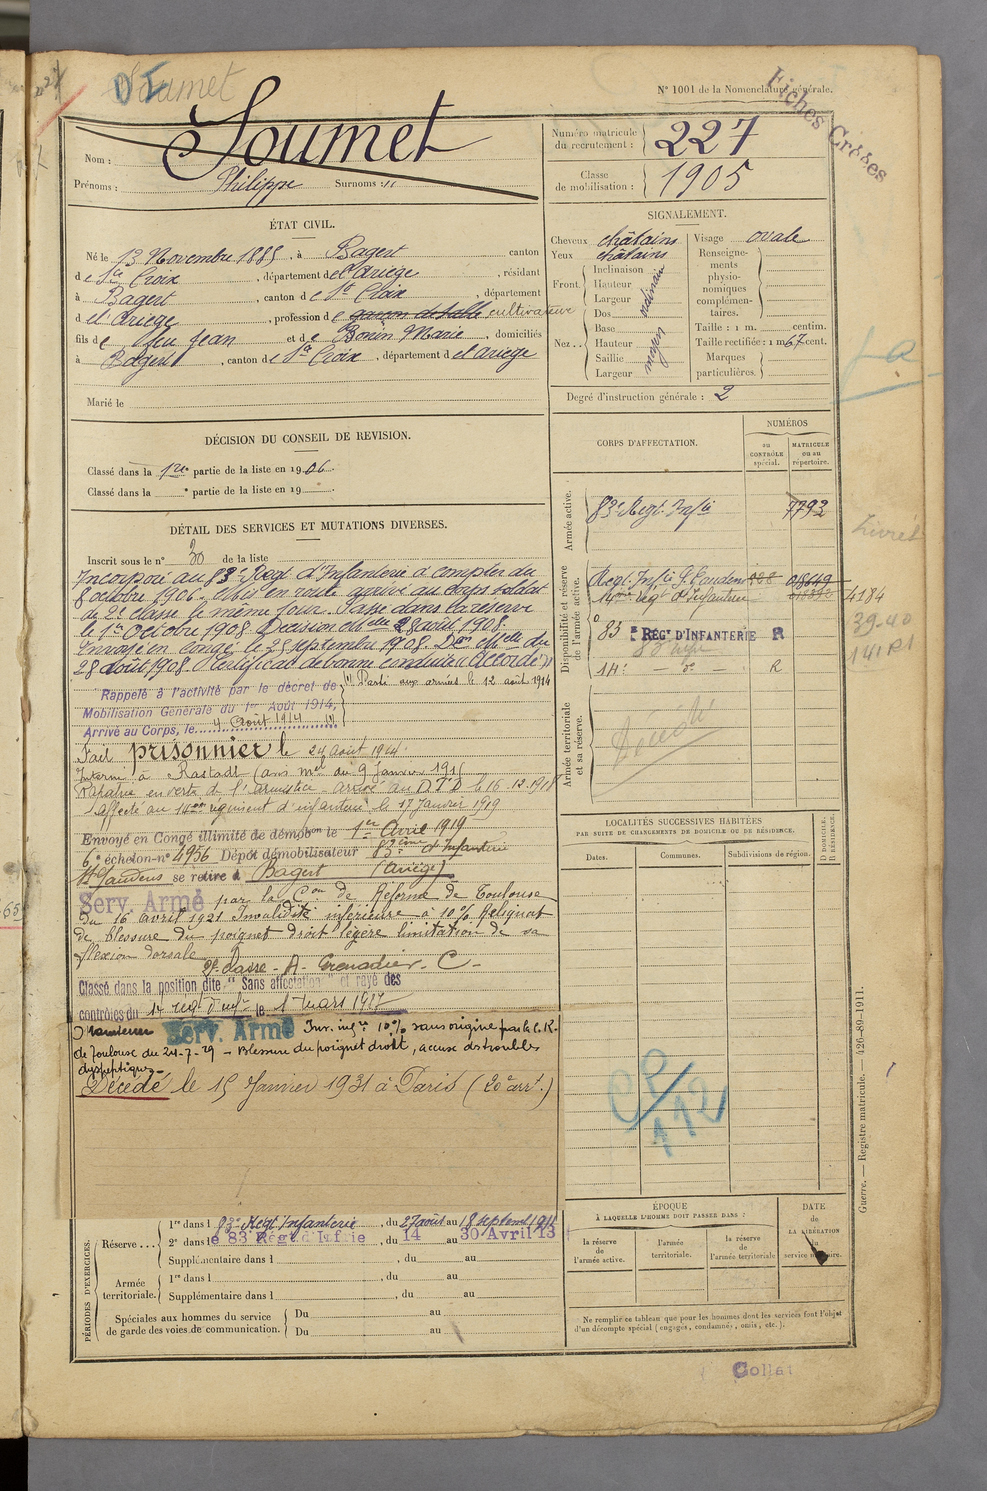 Soumet
N° 1001 de la Nomenclature générale.
Fiches Croses
Nom : Soumet
Prénoms : Philippe Surnoms : "
Numéro matricule du recrutement : 227
Classe de mobilisation : 1905
ÉTAT CIVIL.
Né le 13 Novembre 1885, à Bagert canton
de Ste Croix, département de l'Ariège, résidant
à Bagert, canton de Ste Croix, département
d el Ariege, profession de garçon de table cultivateur
fils de feu Jean et de Bonin Marie, domiciliés
à Bagert, canton de Ste Croix, département d el Ariège
Marié le
SIGNALEMENT.
Cheveux châtains Visage ovale
Yeux châtains
Front. Inclinaison Hauteur Largeur ordinaire
Nez .. Dos Base Hauteur Saillie Largeur moyen
Renseignements physionomiques complémentaires.
Taille : 1 m. centim.
Taille rectifiée : 1 m 67 cent.
Marques particulières.
Degré d'instruction générale : 2
DÉCISION DU CONSEIL DE REVISION.
Classé dans la 1re partie de la liste en 1906.
Classé dans la e partie de la liste en 19 .
DÉTAIL DES SERVICES ET MUTATIONS DIVERSES.
Inscrit sous le n° 30 de la liste
Incorporé au 83e Régt d'Infanterie à compter du
8 octobre 1906. Mis en route arrivé au corps soldat
de 2e classe le même jour. Passé dans la réserve
le 1er Octobre 1908. Décision Melle 28 août 1908.
Envoyé en congé le 25 septembre 1908. Don Melle du
28 août 1908. Certificat de bonne conduite Accordé
Rappelé à l'activité par le décret de
Mobilisation Générale du 1er Août 1914,
Arrivé au Corps, le 4 Août 1914 (1)
(1) Parti aux armées le 12 août 1914
Fait prisonnier le 24 août 1914.
Interné à Rastadt (avis mel du 9 Janvier 1915
Rapatrié en vertu de l'armistice arrivé au D.T.D le 16.12.1918
Affecté au 14em régiment d'infanterie le 17 Janvier 1919
Envoyé en Congé illimité de démobon le 1er Avril 1919
6e échelon-n° 4956 Dépôt démobilisateur 83ème d'Infanterie
St Gaudens se retire à Bagert (Ariège)
Serv. Armé par la Con de Réforme de Toulouse
du 16 avril 1921 Invalidité inférieure à 10% Reliquat
de blessure du poignet droit légère limitation de sa
flexion dorsale
2e classe - A - Grenadier - C -
Classé dans la position dite "Sans affectation" et rayé des
contrôles du 14 regt d'infie le 1 mars 1927
Maintenu Serv. Armé Inv. infre 10% sans origine par la C.R.
de Toulouse du 24-7-29 - Blessure du poignet droit, accuse des troubles
dyspeptiques -
Décédé le 15 Janvier 1931 à Paris (20e arrt.)
CORPS D'AFFECTATION.
NUMÉROS
au CONTRÔLE spécial.
MATRICULE ou au répertoire.
Armée active.
83e Régt Infie 7793
Disponibilité et réserve de l'armée active.
Regt Infie St Gaudens 228 018649
14me Régt d'Infanterie 4184
83 E RÉGT D'INFANTERIE R
14e — de — R
39-40
Livret
Armée territoriale et sa réserve.
Décédé
LOCALITÉS SUCCESSIVES HABITÉES
PAR SUITE DE CHANGEMENTS DE DOMICILE OU DE RÉSIDENCE.
Dates. Communes. Subdivisions de région. D DOMICILE. R RÉSIDENCE.
CP/112
PÉRIODES D'EXERCICES.
Réserve ... 1re dans l 83e Régt Infanterie, du 27 août au 18 septemb 1911
2e dans le 83e Régt d'Infrie, du 14 au 30 Avril 13
Supplémentaire dans l , du au
Armée territoriale. 1re dans l , du au
Supplémentaire dans l , du au
Spéciales aux hommes du service de garde des voies de communication. Du au
Du au
ÉPOQUE
À LAQUELLE L'HOMME DOIT PASSER DANS :
la réserve de l'armée active.
l'armée territoriale.
la réserve de l'armée territoriale
DATE de LA LIBÉRATION du service militaire.
Ne remplir ce tableau que pour les hommes dont les services font l'objet
d'un décompte spécial (engagés, condamnés, omis, etc.).
Guerre. — Registre matricule. — 426-89-1911.
Collat